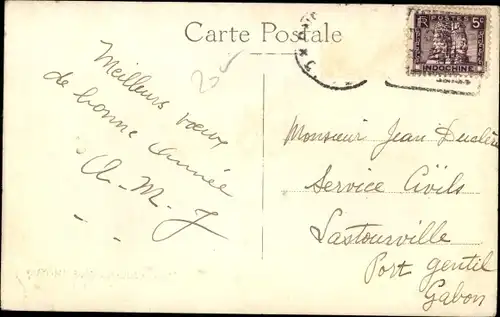 Carte Postale
RF POSTES 5c
INDOCHINE
Meilleurs voeux
de bonne année
A. M. J
Monsieur Jean
Service Civils
Lastourville
Port Gentil
Gabon